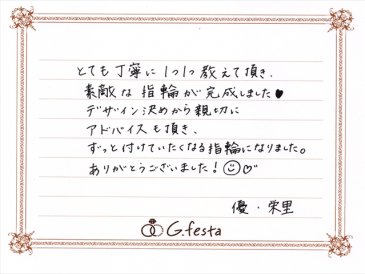 とても丁寧に1つ1つ教えて頂き、
素敵な指輪が完成しました♥
デザイン決めから親切に
アドバイスも頂き、
ずっと付けていたくなる指輪になりました。
ありがとうございました!☺♡
優・栄里
G.festa